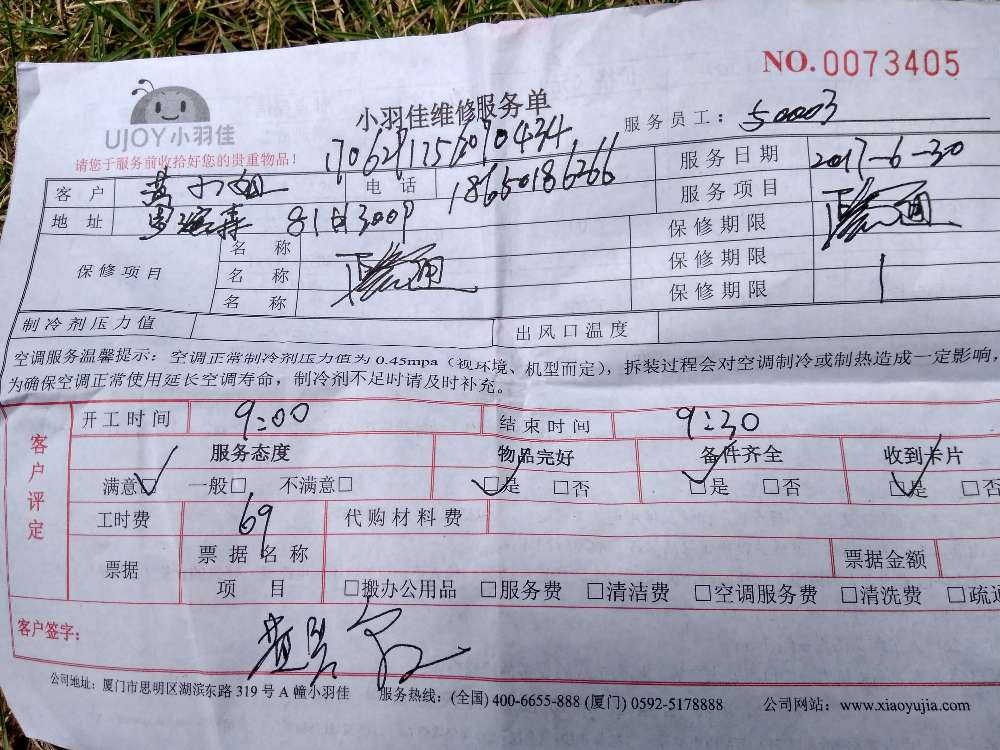 NO.0073405
UJOY小羽佳
小羽佳维修服务单
服务员工：50003
请您于服务前收拾好您的贵重物品！
1706291752090434
客户 小姐 电话 18650186266 服务日期 2017-6-30
地址 服务项目 通
保修项目 名称 通 保修期限
名称 保修期限
名称 保修期限
制冷剂压力值 出风口温度
空调服务温馨提示：空调正常制冷剂压力值为0.45mpa（视环境、机型而定），拆装过程会对空调制冷或制热造成一定影响，
为确保空调正常使用延长空调寿命，制冷剂不足时请及时补充。
客户评定
开工时间 9:00 结束时间 9:30
服务态度 物品完好 备件齐全 收到卡片
满意□ 一般□ 不满意□ □是 □否 □是 □否 □是 □否
工时费 69 代购材料费
票据 票据名称 票据金额
项目 □搬办公用品 □服务费 □清洁费 □空调服务费 □清洗费 □疏通
客户签字：
公司地址：厦门市思明区湖滨东路319号A幢小羽佳 服务热线：(全国) 400-6655-888 (厦门) 0592-5178888 公司网站：www.xiaoyujia.com